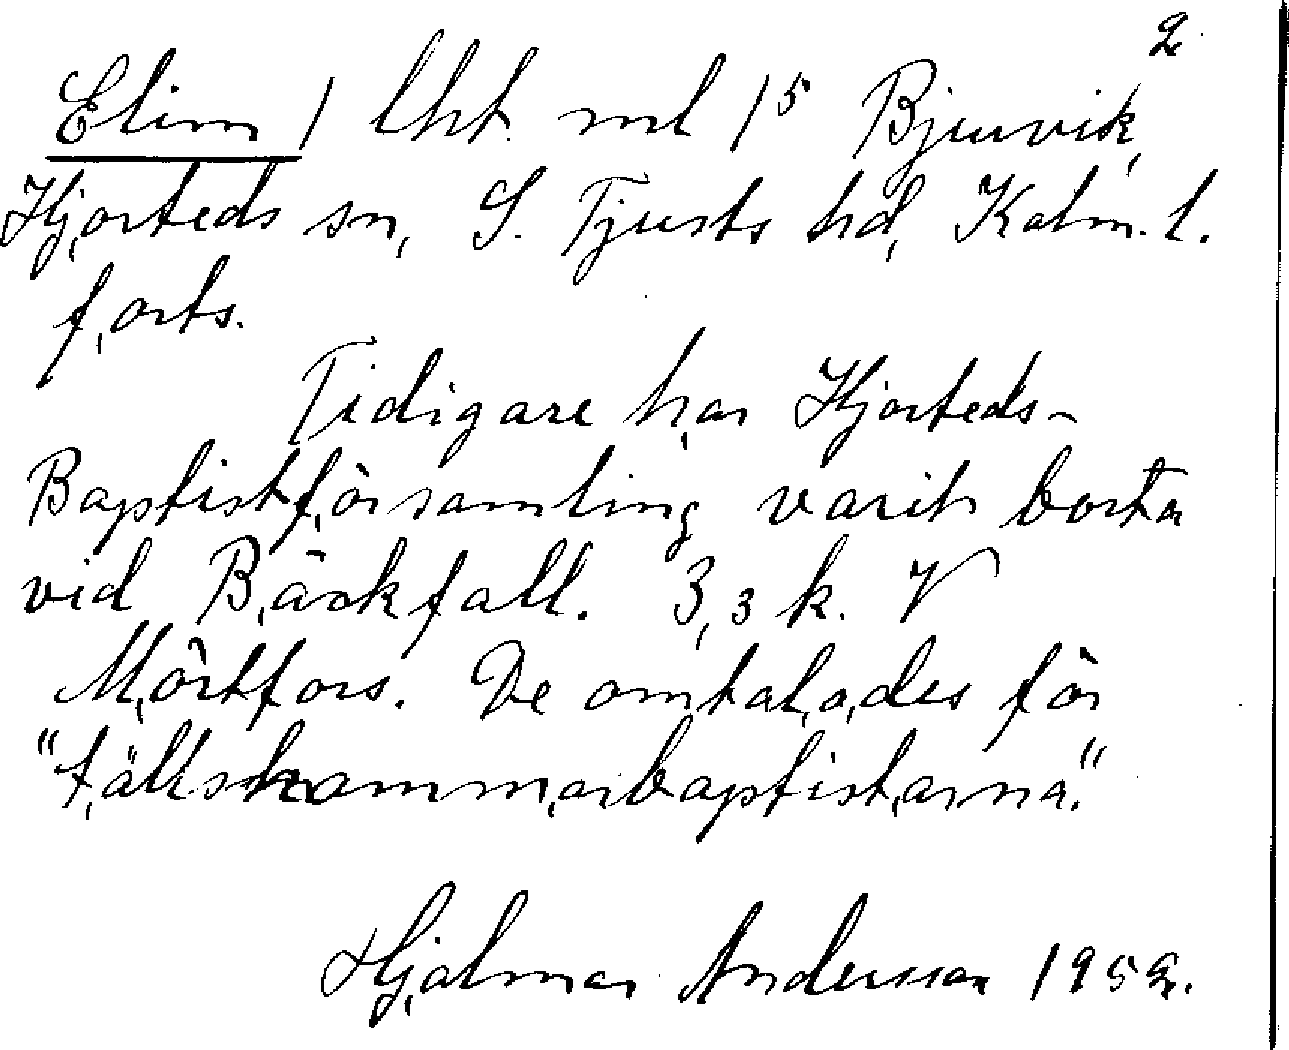 2
Elim / lht. ml 15 Bjurvik,
Hjorteds sn, S. Tjusts hd, Kalm. l.
forts.
Tidigare har Hjorteds-
Baptistförsamling varit borta
vid Bäckfall. 3,3 k. V
Mörtfors. De omtalades för
"fältskammarbaptistarna."
Hjalmar Andersson 1952.